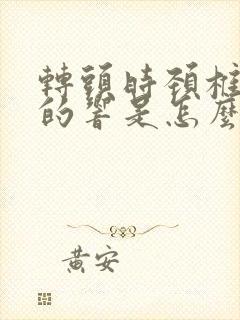 轉頭時頚椎
的響是怎麼
黃安